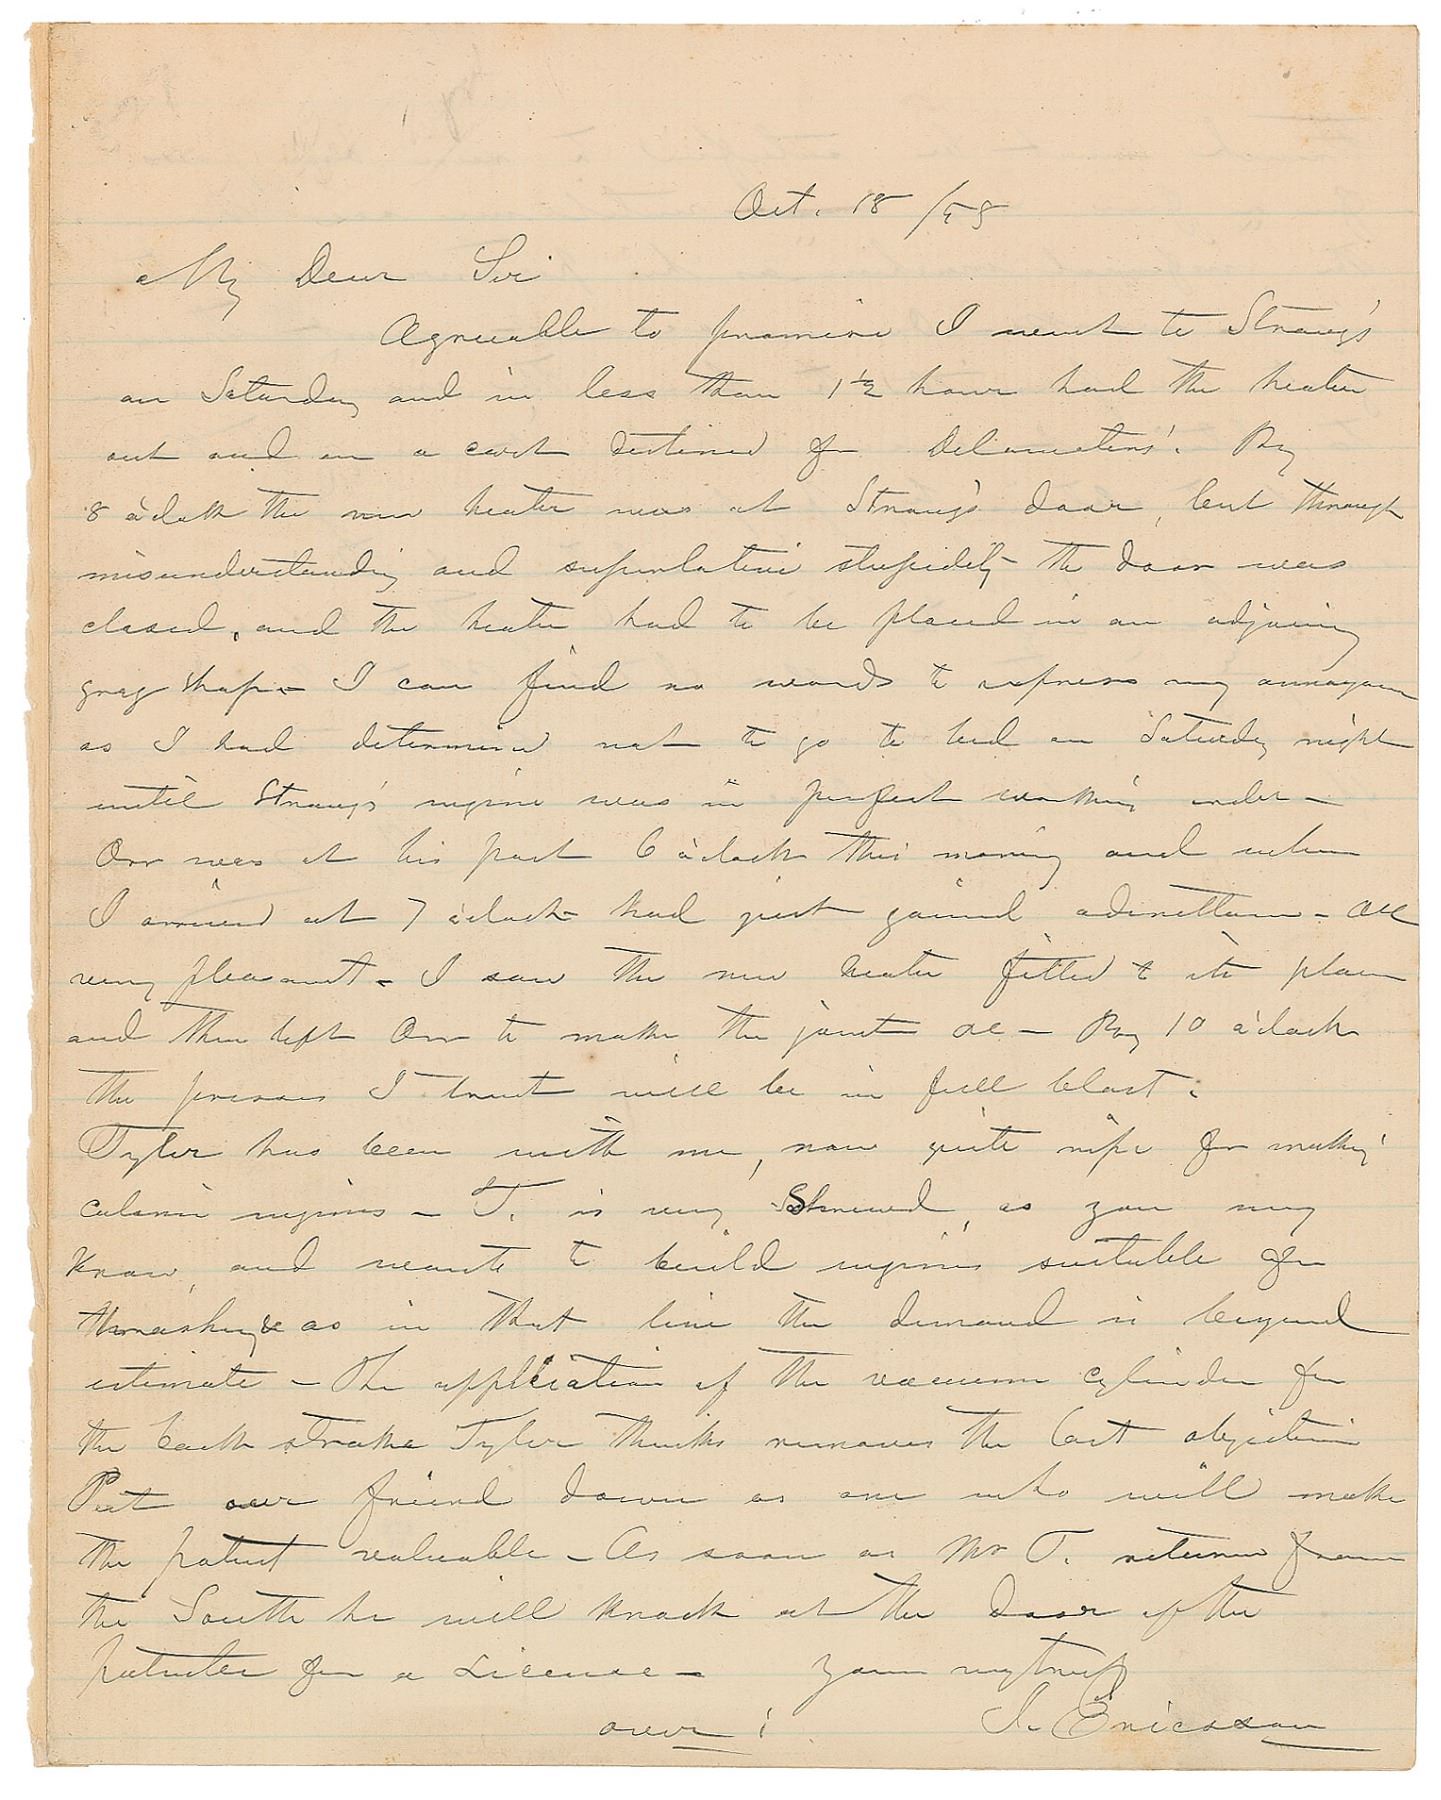 Oct. 18 /58
My Dear Sir
Agreeable to promise I went to Strang's
on Saturday and in less than 1½ hour had the heater
out and on a cart destined for Delamaters'. By
8 o'clock the new heater was at Strang's door, but through
misunderstanding and superlative stupidity the door was
closed, and the heater had to be placed in an adjoining
grog shop – I can find no words to express my annoyance
as I had determined not to go to bed on Saturday night
until Strang's engine was in perfect working order –
Orr was at his post 6 o'clock this morning and when
I arrived at 7 o'clock had just gained admittance – All
very pleasant – I saw the new heater fitted to its place
and then left Orr to make the joint &c – By 10 o'clock
the presses I trust will be in full blast.
Tyler has been with me, now quite ripe for making
caloric engines – T. is very Shrewd, as you may
know, and wants to build engines suitable for
thrashing &c as in that line the demand is beyond
estimate – The application of the vacuum cylinder for
the back stroke Tyler thinks removes the last objection
Put our friend down as one who will make
the patent valuable – As soon as Mr T. returns from
the South he will knock at the door of the
patentee for a License – Yours very truly
over! J. Ericsson